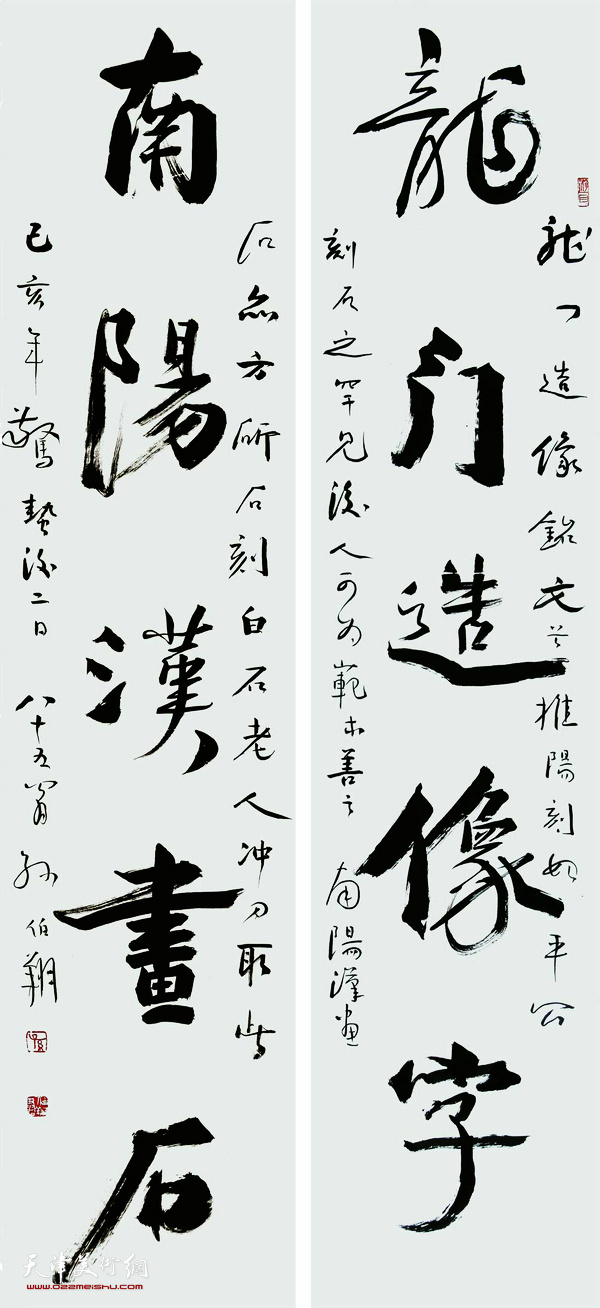 龍门造像字
龙门造像銘文 推陽刻如平公
刻石之罕见 後人可为範本善之 南陽漢画
南陽漢畫石
石 方 石刻白石老人冲刀取此
己亥年驚蟄後二日 八十五翁 孙伯翔
天津美术網
www.022meishu.com